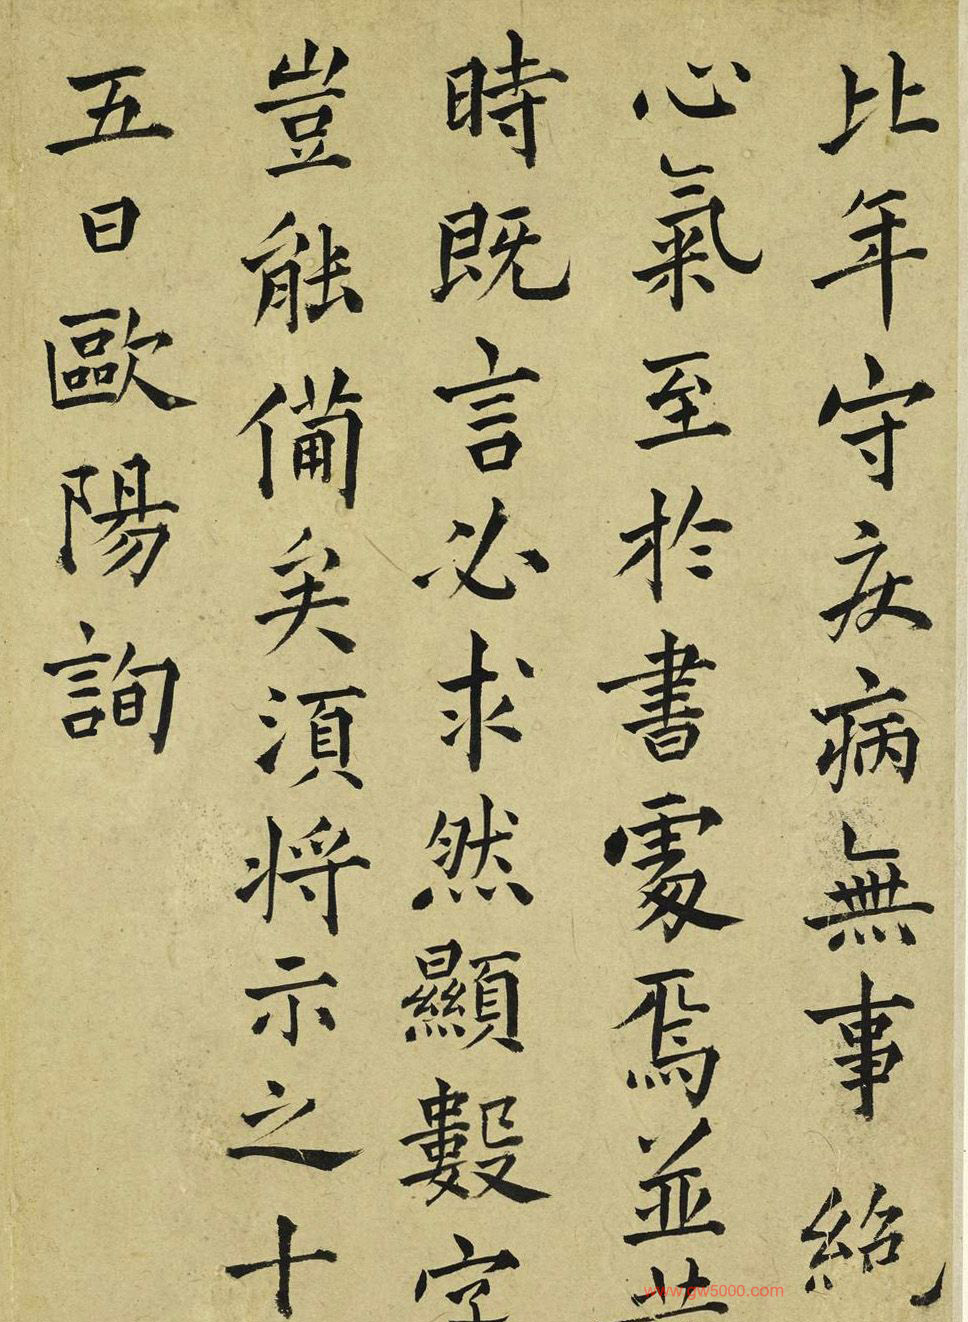 比年守疾病無事絕
心氣至於書處焉並
時既言必求然顯數字
豈能備矣須將示之十
五日歐陽詢
www.gw5000.com